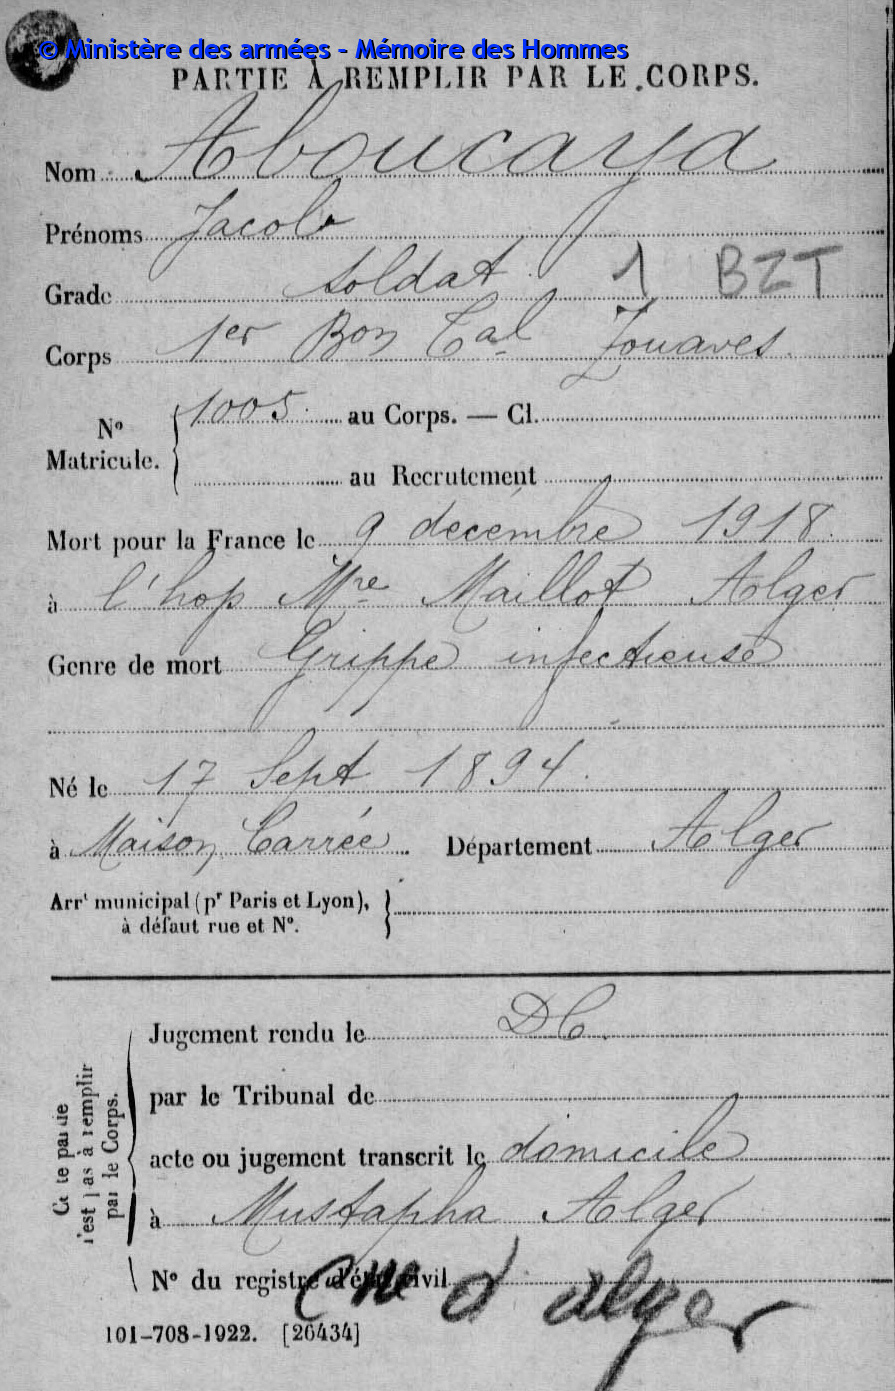 © Ministère des armées - Mémoire des Hommes
PARTIE À REMPLIR PAR LE CORPS.
Nom Aboucaya
Prénoms Jacob
Grade soldat 1 BZT
Corps 1er Bon Cal Zouaves
No Matricule. 1005 au Corps. — Cl.
au Recrutement
Mort pour la France le 9 décembre 1918
à l'hop Mre Maillot Alger
Genre de mort Grippe infectieuse
Né le 17 Sept 1894
à Maison Carrée. Département Alger
Arrt municipal (pr Paris et Lyon),
à défaut rue et No.
Cette partie
n'est pas à remplir
par le Corps.
Jugement rendu le DC
par le Tribunal de
acte ou jugement transcrit le domicile
à Mustapha Alger
No du registre d'état civil
Cne d'alger
101-708-1922. [26434]